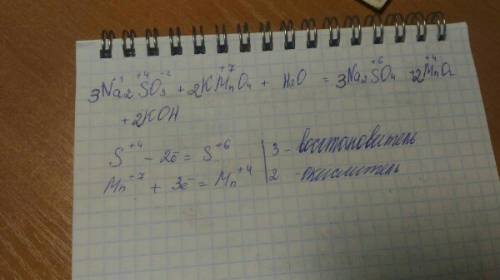 3Na₂⁺¹S⁺⁴O₃⁻² + 2KMn⁺⁷O₄ + H₂O = 3Na₂S⁺⁶O₄ 2Mn⁺⁴O₂
+ 2KOH
S⁺⁴ - 2e⁻ = S⁺⁶ | 3 - восстановитель
Mn⁺⁷ + 3e⁻ = Mn⁺⁴ | 2 - окислитель